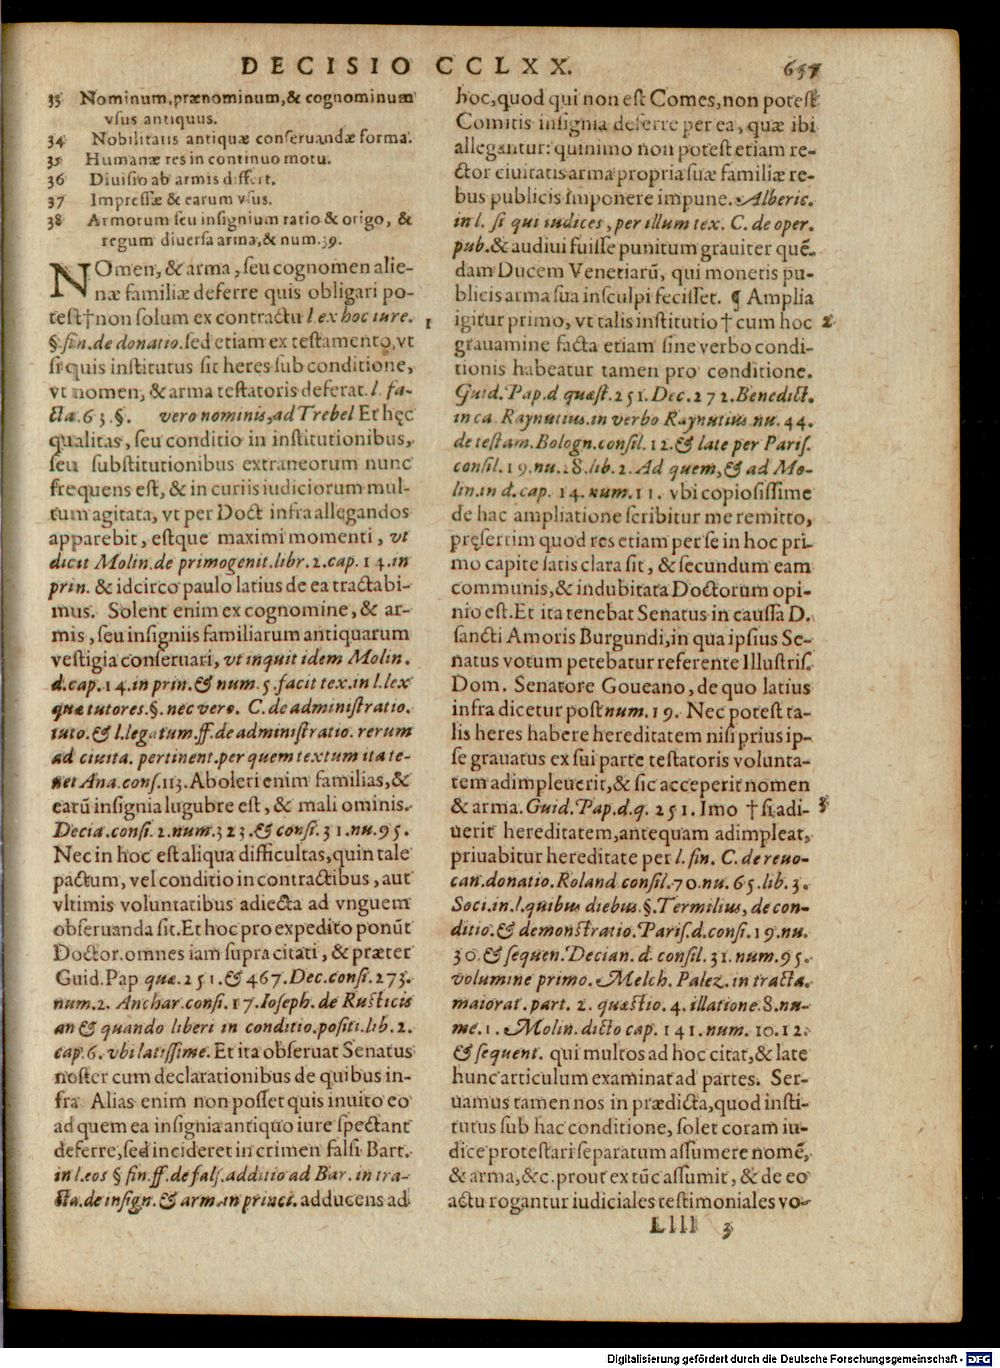 DECISIO CCLXX. 637
33 Nominum, prænominum, & cognominum
vſus antiquus.
34 Nobilitatis antiquæ conſeruandæ forma.
35 Humanæ res in continuo motu.
36 Diuiſio ab armis differt.
37 Impreſſæ & earum vſus.
38 Armorum ſeu inſignium ratio & origo, &
regum diuerſa arma, & num. 39.
NOmen, & arma, ſeu cognomen alie-
næ familiæ deferre quis obligari po-
teſt † non ſolum ex contractu l. ex hoc iure. 1
§. fin. de donatio. ſed etiam ex teſtamento, vt
ſi quis inſtitutus ſit heres ſub conditione,
vt nomen, & arma teſtatoris deferat. l. fa-
cta. 63. §. vero nominis, ad Trebel Et hęc
qualitas, ſeu conditio in inſtitutionibus,
ſeu ſubſtitutionibus extraneorum nunc
frequens eſt, & in curiis iudiciorum mul-
tum agitata, vt per Doct infra allegandos
apparebit, eſtque maximi momenti, vt
dicit Molin. de primogenit. libr. 2. cap. 14. in
prin. & idcirco paulo latius de ea tractabi-
mus. Solent enim ex cognomine, & ar-
mis, ſeu inſigniis familiarum antiquarum
veſtigia conſeruari, vt inquit idem Molin.
d. cap. 14. in prin. & num. 5. facit tex. in l. lex
quæ tutores. §. nec vero. C. de adminiſtratio.
tuto. & l. legatum. ff. de adminiſtratio. rerum
ad ciuita. pertinent. per quem textum ita te-
net Ana. conſ. 113. Aboleri enim familias, &
earū inſignia lugubre eſt, & mali ominis.
Decia. conſi. 2. num. 323. & conſi. 31. nu. 95.
Nec in hoc eſt aliqua difficultas, quin tale
pactum, vel conditio in contractibus, aut
vltimis voluntatibus adiecta ad vnguem
obſeruanda ſit. Et hoc pro expedito ponūt
Doctor. omnes iam ſupra citati, & præter
Guid. Pap quæ. 251. & 467. Dec. conſi. 273.
num. 2. Anchar. conſi. 17. Ioſeph. de Ruſticis
an & quando liberi in conditio. poſiti. lib. 2.
cap. 6. vbi latiſſime. Et ita obſeruat Senatus
noſter cum declarationibus de quibus in-
fra Alias enim non poſſet quis inuito eo
ad quem ea inſignia antiquo iure ſpectant
deferre, ſed incideret in crimen falſi Bart.
in l. eos § fin. ff. de falſ. additio ad Bar. in tra-
cta. de inſign. & arm. in princi. adducens ad
hoc, quod qui non eſt Comes, non poteſt
Comitis inſignia deferre per ea, quæ ibi
allegantur: quinimo non poteſt etiam re-
ctor ciuitatis arma propria ſuæ familiæ re-
bus publicis imponere impune. Alberic.
in l. ſi qui iudices, per illum tex. C. de oper.
pub. & audiui fuiſſe punitum grauiter quē-
dam Ducem Venetiarū, qui monetis pu-
blicis arma ſua inſculpi feciſſet. ¶ Amplia
igitur primo, vt talis inſtitutio † cum hoc 2
grauamine facta etiam ſine verbo condi-
tionis habeatur tamen pro conditione.
Guid. Pap. d quæſt. 251. Dec. 272. Benedict.
in ca. Raynutius. in verbo Raynutius. nu. 44.
de teſtam. Bologn. conſil. 12. & late per Pariſ.
conſil. 19. nu. 28. lib. 2. Ad quem, & ad Mo-
lin. in d. cap. 14. num. 11. vbi copioſiſſime
de hac ampliatione ſcribitur me remitto,
pręſertim quod res etiam per ſe in hoc pri-
mo capite ſatis clara ſit, & ſecundum eam
communis, & indubitata Doctorum opi-
nio eſt. Et ita tenebat Senatus in cauſſa D.
ſancti Amoris Burgundi, in qua ipſius Se-
natus votum petebatur referente Illuſtriſ.
Dom. Senatore Goueano, de quo latius
infra dicetur poſt num. 19. Nec poteſt ta-
lis heres habere hereditatem niſi prius ip-
ſe grauatus ex ſui parte teſtatoris volunta-
tem adimpleuerit, & ſic acceperit nomen
& arma. Guid. Pap. d. q. 251. Imo † ſi adi- 3
uerit hereditatem, antequam adimpleat,
priuabitur hereditate per l. fin. C. de reuo-
can. donatio. Roland conſil. 70. nu. 65. lib. 3.
Soci. in l. quibus diebus. §. Termilius, de con-
ditio. & demonſtratio. Pariſ. d. conſi. 19. nu.
30. & ſequen. Decian. d. conſil. 31. num. 95.
volumine primo. Melch. Palez. in tracta.
maiorat. part. 2. quæſtio. 4. illatione. 8. nu-
me. 1. Molin. dicto cap. 141. num. 10. 12.
& ſequent. qui multos ad hoc citat, & late
hunc articulum examinat ad partes. Ser-
uamus tamen nos in prædicta, quod inſti-
tutus ſub hac conditione, ſolet coram iu-
dice proteſtari ſeparatum aſſumere nomē,
& arma, &c. prout ex tūc aſſumit, & de eo
actu rogantur iudiciales teſtimoniales vo-
Llll 3
Digitalisierung gefördert durch die Deutsche Forschungsgemeinschaft - DFG